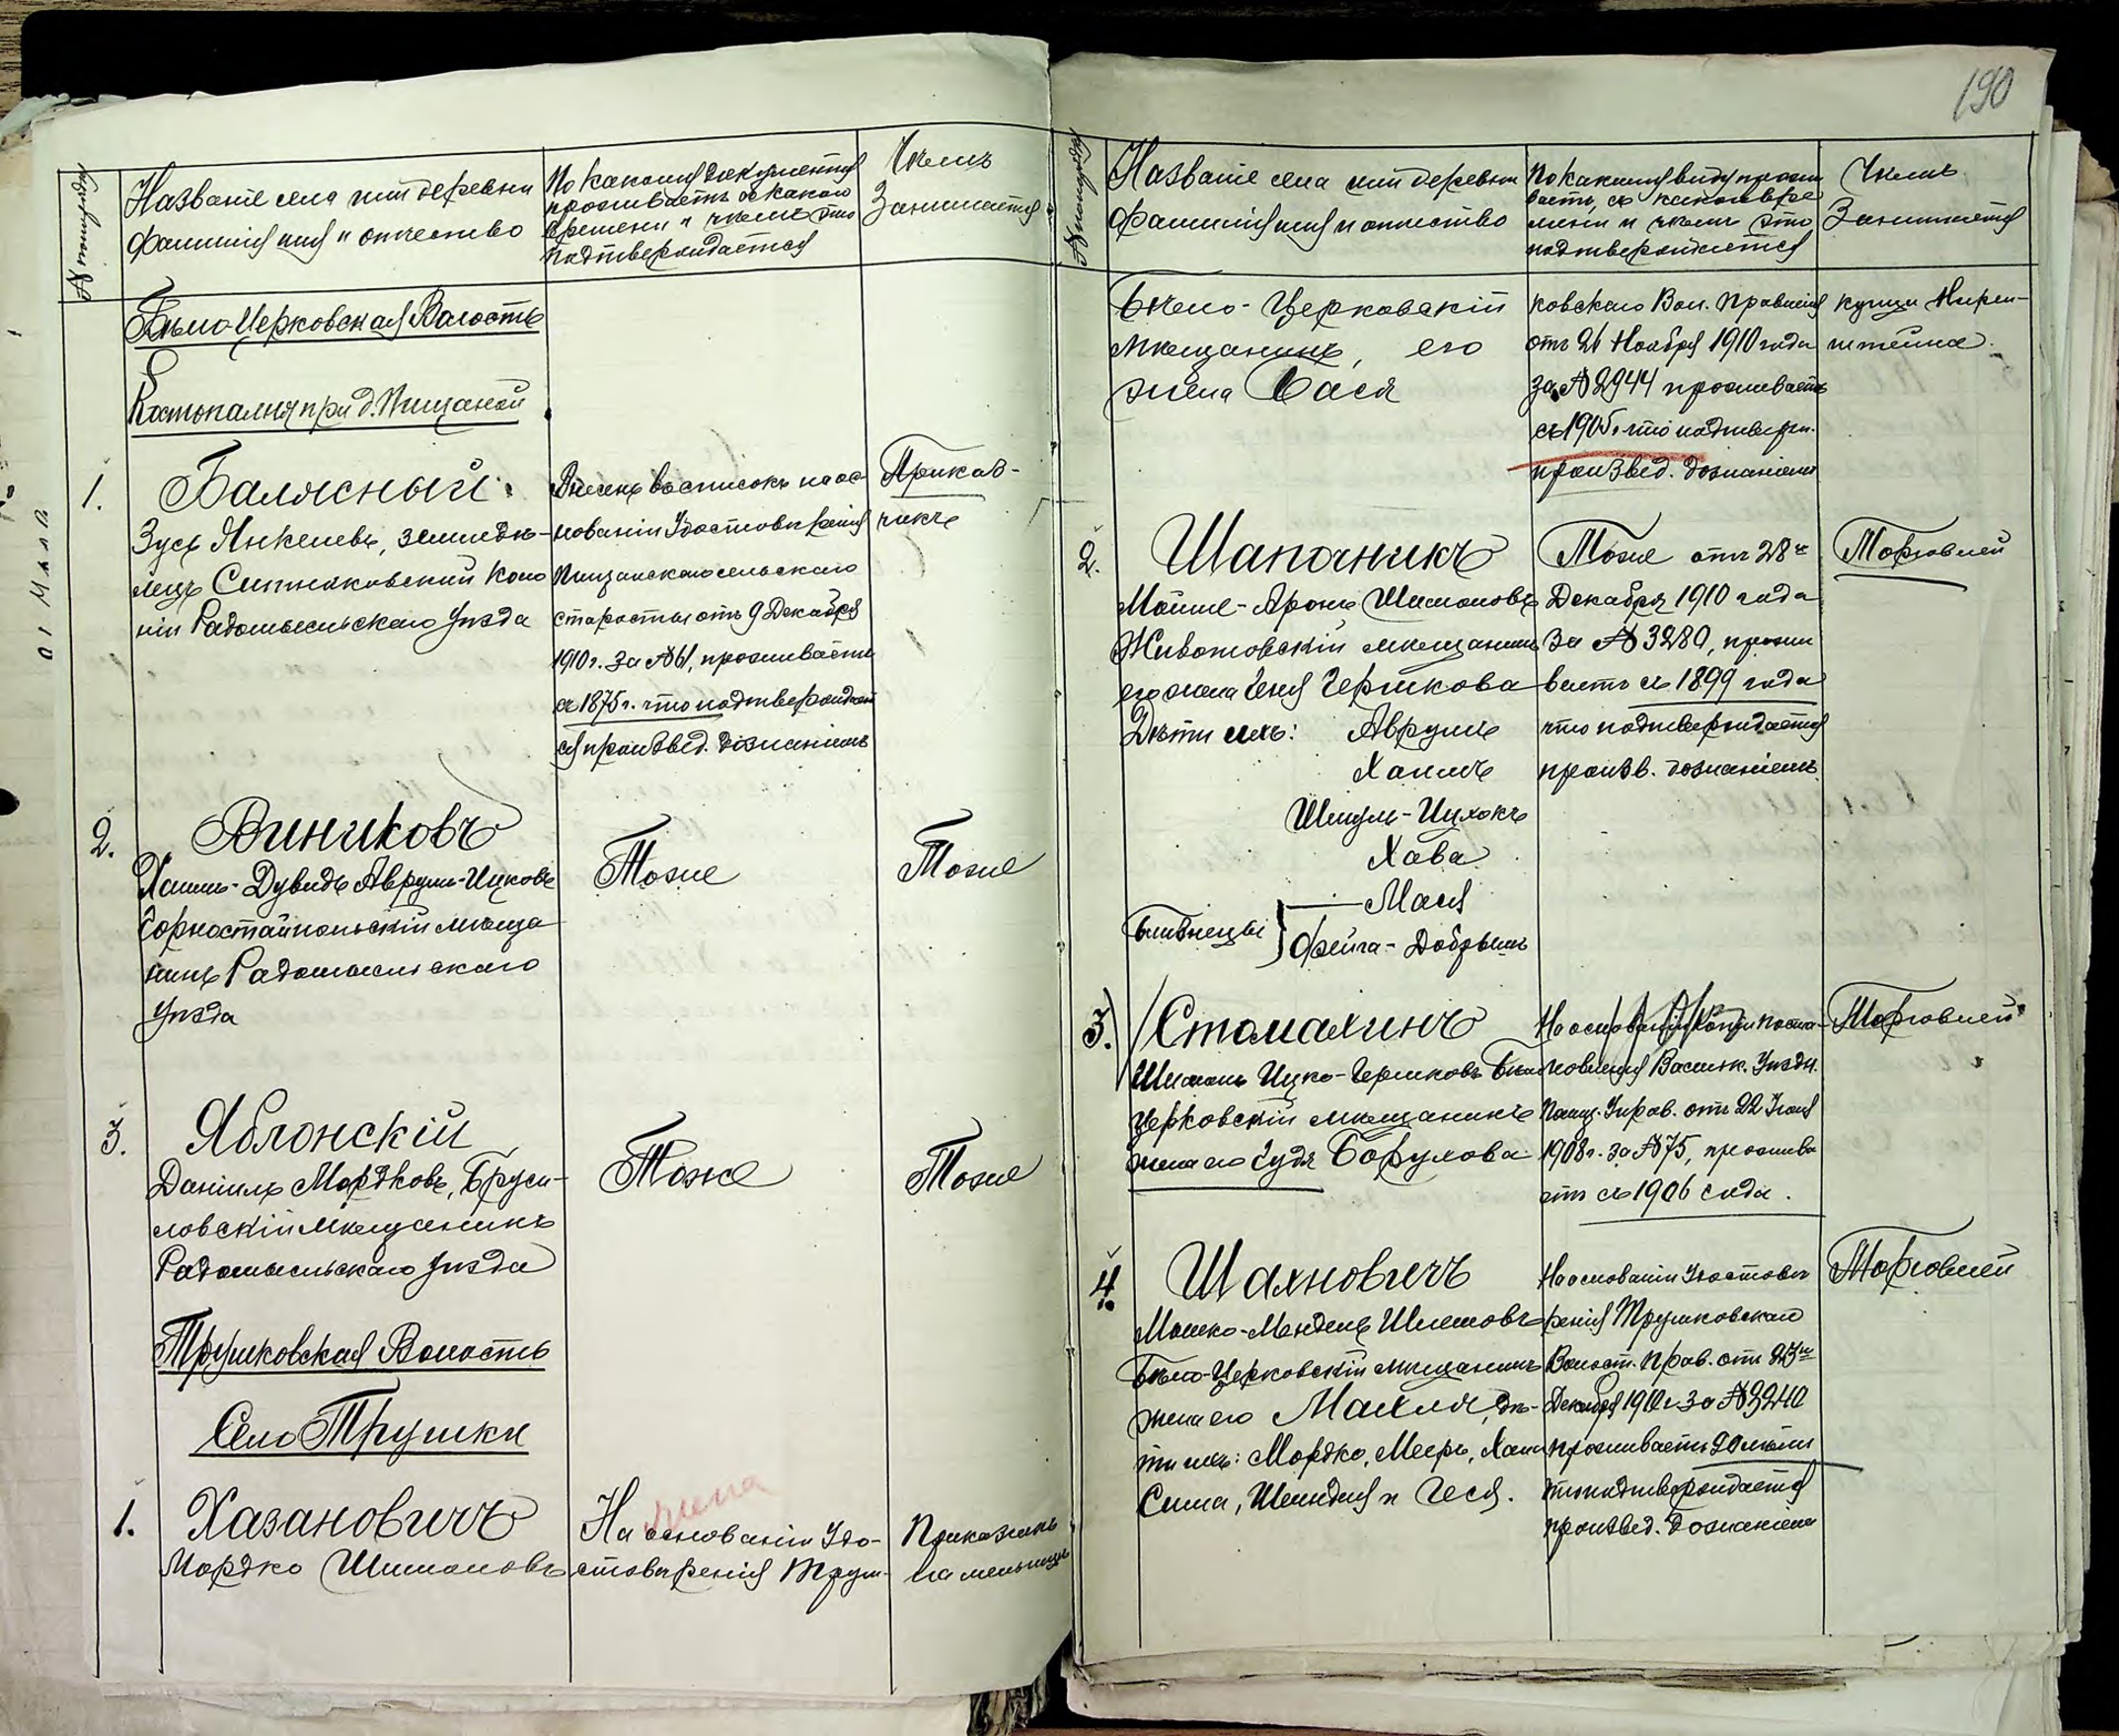 № по порядку
Названіе села или деревни
фамилія имя и отчество
По какому документу
проживаетъ съ какого
времени и чѣмъ это
подтверждается
Чѣмъ
Занимается
Бѣло-Церковская Волость
Костопальня при д. Пищаной
1.
Балясный
Зусь Янкелевъ, земледѣ-
лецъ Ситняковской Коло
ніи Радомысльскаго Уѣзда
Внесенъ въ списокъ на ос-
нованіи Удостовѣренія
Пищанскаго сельскаго
старосты отъ 9 Декабря
1910 г. за № 61, проживаетъ
съ 1875 г. что подтверждает
ся произвед. дознаніемъ
Приказ-
чикъ
2.
Виниковъ
Хаимъ-Дувидъ Аврумъ-Ицковъ
Горностайпольскій мѣща
нинъ Радомысльскаго
Уѣзда
Тоже
Тоже
3.
Яблонскій
Даніилъ Мордковъ, Бруси-
ловскій мѣщанинъ
Радомысльскаго Уѣзда
Тоже
Тоже
Трушковская Волость
Село Трушки
1.
Хазановичъ
Мордко Шимоновъ
На основаніи Удо-
стовѣренія Труш-
Приказчикъ
на мельницѣ
190
№ по порядку
Названіе села или деревни
фамилія имя и отчество
По какому виду прожи
ваетъ, съ какого вре
мени и чѣмъ это
подтверждается
Чѣмъ
Занимается
Бѣло-Церковскій
мѣщанинъ, его
жена Бася
ковскаго Вол. Правленія
отъ 21 Ноября 1910 года
за № 2944 проживаетъ
съ 1905 г. что подтверж.
произвед. дознаніемъ
купца
2.
Шапочникъ
Мойше-Аронъ Шимоновъ
Животовскій мѣщанинъ
его жена Геня Гершкова
Дѣти ихъ: Аврумъ
Хаимъ
Шмуль-Ицхокъ
Хава
Близнецы } Маня
Фейга-Добрышъ
Тоже отъ 28го
Декабря 1910 года
за № 3280, прожи
ваетъ съ 1899 года
что подтверждается
произв. дознаніемъ
Торговлей
3.
Стомахинъ
Шимонъ Ицко-Гершковъ Бѣло
церковскій мѣщанинъ
жена его Судя Борухова
На основаніи копіи поста-
новленія Васильк. Уѣздн.
Полиц. Управ. отъ 22 Іюня
1908 г. за № 75, прожива
етъ съ 1906 года.
Торговлей
4.
Шахновичъ
Мошко-Мендель Шлемовъ
Бѣло-Церковскій мѣщанинъ
жена его Махля, дѣ-
ти ихъ: Мордко, Меерь, Хаим
Сима, Шейндля и Геся.
На основаніи Удостовѣ
ренія Трушковскаго
Волост. Прав. отъ 23го
Декабря 1910 г. за № 3240
проживаетъ 20 лѣтъ
что подтверждается
произвед. дознаніемъ
Торговлей